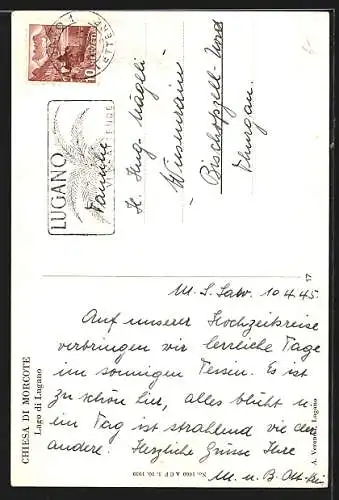 HELVETIA
10
LUGANO
Familie
H. Hug-Nägeli
Wiesenrain
Bischoffzell-Nord
Thurgau.
CHIESA DI MORCOTE
Lago di Lugano
M. S. Salv. 10.4.45.
Auf unserer Hochzeitsreise
verbringen wir herrliche Tage
im sonnigen Tessin. Es ist
zu schön hier, alles blüht u.
ein Tag ist strahlend wie der
andere. Herzliche Grüsse Ihre
M. u. B. Ott-
17
A. Veronesi, Lugano
No. 1060 A C F 1. 10. 1939